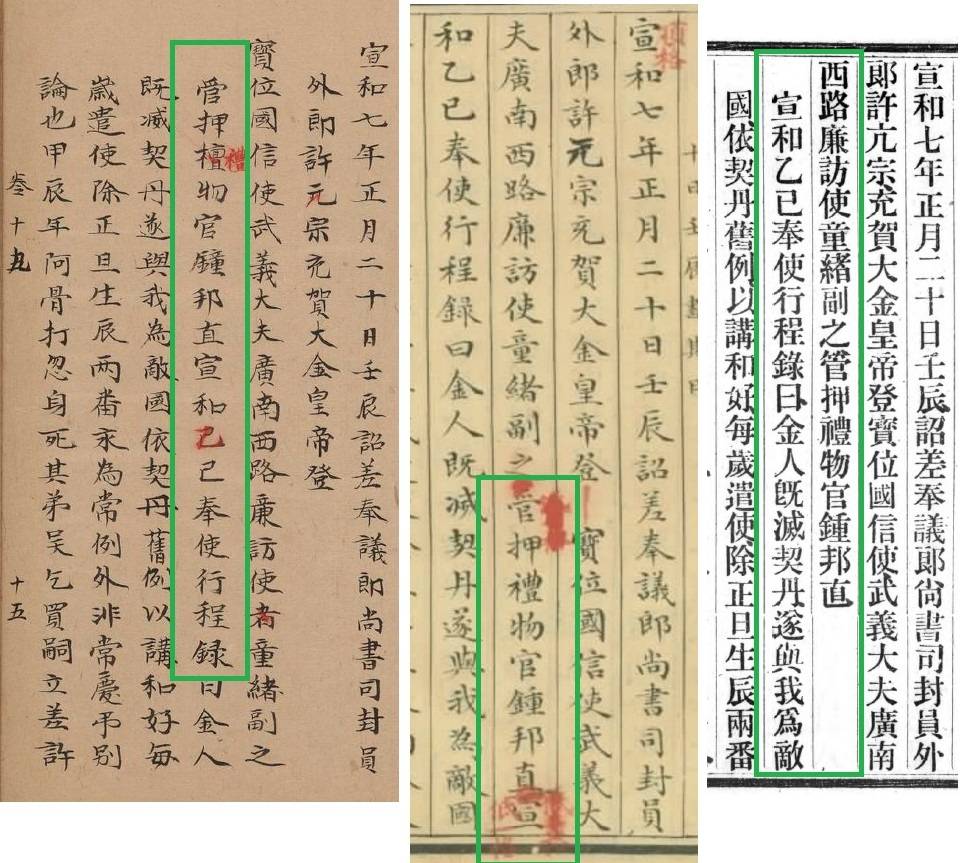 宣和七年正月二十日壬辰詔差奉議郎尚書司封員
外郎許亢宗充賀大金皇帝登
寶位國信使武義大夫廣南西路廉訪使者童緒副之
管押檀物官鐘邦直宣和乙已奉使行程録曰金人
禮
既滅契丹遂與我為敵國依契丹舊例以講和好每
歲遣使除正旦生辰兩番永為常例外非常慶弔別
論也甲辰年阿骨打忽身死其弟吴乞買嗣立差許
卷十九 十五
頂格
宣和七年正月二十日壬辰詔差奉議郎尚書司封員
外郎許亢宗充賀大金皇帝登 寶位國信使武義大
夫廣南西路廉訪使童緒副之管押禮物官鍾邦直宣
和乙巳奉使行程録曰金人既滅契丹遂與我為敵國
宣和七年正月二十日壬辰詔差奉議郎尙書司封員外
郞許亢宗充賀大金皇帝登寶位國信使武義大夫廣南
西路廉訪使童緒副之管押禮物官鍾邦直
宣和乙巳奉使行程錄曰金人旣滅契丹遂與我爲敵
國依契丹舊例以講和好每歲遣使除正旦生辰兩番